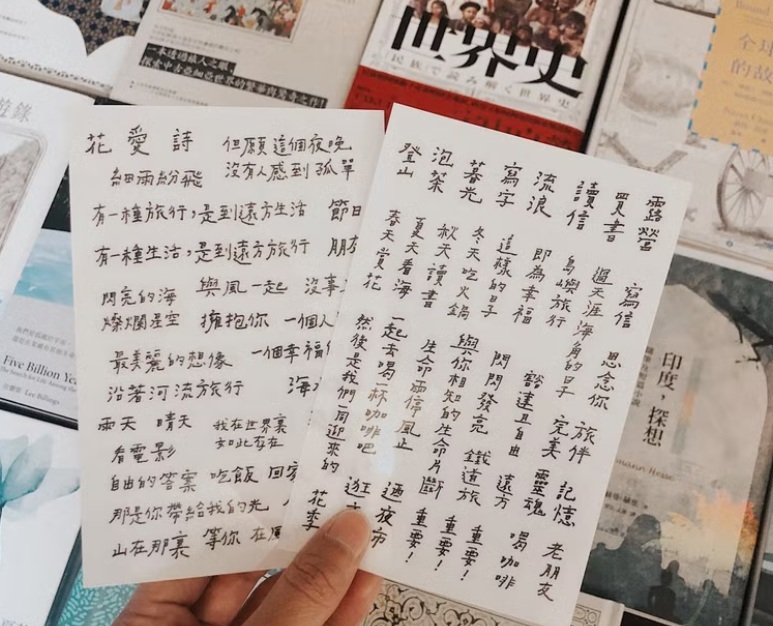 世界史
民族で読み解く世界史
一本穿過旅人之眼,
探索中古亞細亞世界的繁華與驚奇之作!
全球
的故
遊錄
花 愛 詩 但願這個夜晚
細雨紛飛 沒有人感到孤單
有一種旅行,是到遠方生活 節日
有一種生活,是到遠方旅行 朋友
閃亮的海 與風一起 沒事
燦爛星空 擁抱你 一個人
最美麗的想像 一個幸福
沿著河流旅行 海
雨天 晴天 我在世界裏
看電影 如此存在
自由的答案 吃飯 回家
那是你帶給我的光
山在那裏 等你 在
露營 寫信 思念你 旅伴 記憶 老朋友
買書 過天涯海角的日子 完美 靈魂 喝咖啡
讀信 島嶼旅行 豁達且自由 遠方
流浪 即為幸福 閃閃發亮 鐵道旅
寫字 這樣的日子 與你相知的生命片斷 重要!
暮光 冬天吃火鍋 生命雨停風止 重要!
泡茶 秋天讀書 重要!
登山 夏天看海 一起去喝一杯咖啡吧 夜市
春天賞花 然後是我們一同迎來的 逛
花季
印度,探想
Five Billion Ye
The Search for Life Among the
Lee Billings